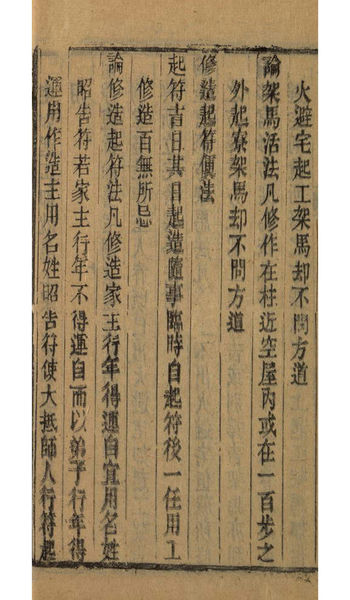 火避宅起工架馬却不問方道
論架馬活法凡修作在柱近空屋內或在一百步之
外起寮架馬却不問方道
修造起符便法
起符吉日其日起造隨事臨時自起符後一任用工
修造百無所忌
論修造起符法凡修造家主行年得運自宜用名姓
昭告符若家主行年不得運自而以弟子行年得
運用作造主用名姓昭告符使大抵師人行符起